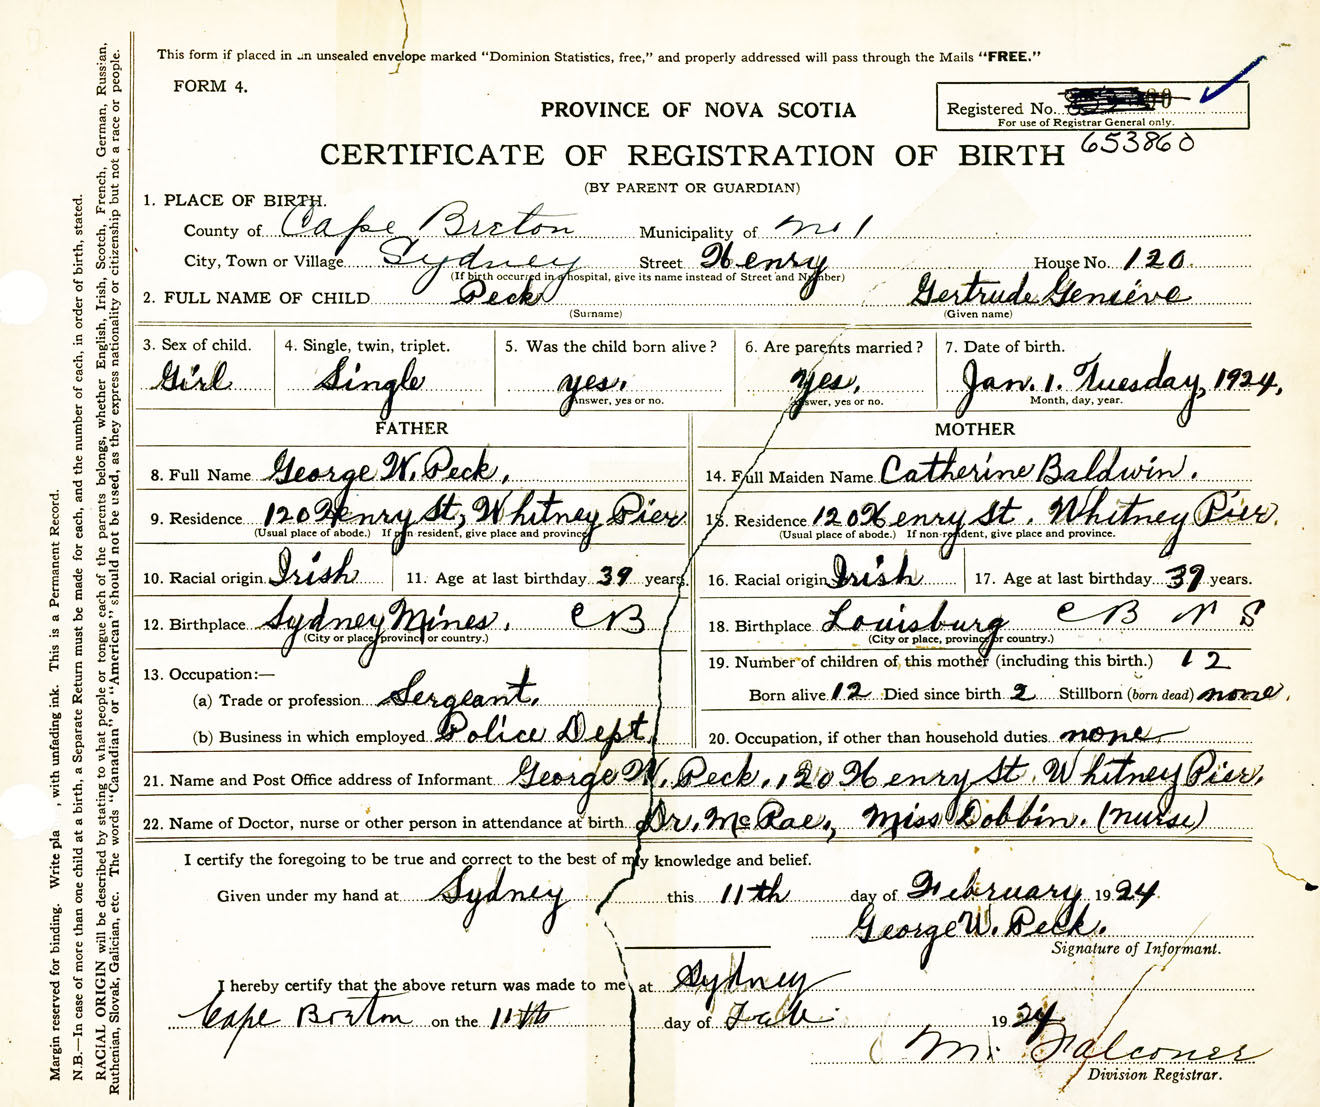 This form if placed in an unsealed envelope marked "Dominion Statistics, free," and properly addressed will pass through the Mails "FREE."
FORM 4.
PROVINCE OF NOVA SCOTIA
Registered No.
For use of Registrar General only.
653860
CERTIFICATE OF REGISTRATION OF BIRTH
(BY PARENT OR GUARDIAN)
1. PLACE OF BIRTH.
County of Cape Breton Municipality of No 1
City, Town or Village Sydney Street Henry House No. 120.
(If birth occurred in a hospital, give its name instead of Street and Number)
2. FULL NAME OF CHILD Peck Gertrude Geniéve
(Surname) (Given name)
3. Sex of child. 4. Single, twin, triplet. 5. Was the child born alive? 6. Are parents married? 7. Date of birth.
Girl Single yes. yes. Jan. 1. Tuesday, 1924,
Answer, yes or no. Answer, yes or no. Month, day, year.
FATHER MOTHER
8. Full Name George W. Peck. 14. Full Maiden Name Catherine Baldwin.
9. Residence 120 Henry St, Whitney Pier 15. Residence 120 Henry St. Whitney Pier.
(Usual place of abode.) If non resident, give place and province (Usual place of abode.) If non-resident, give place and province.
10. Racial origin Irish 11. Age at last birthday 39 years. 16. Racial origin Irish 17. Age at last birthday 39 years.
12. Birthplace Sydney Mines. C B 18. Birthplace Louisburg C B N S
(City or place, province or country.) (City or place, province or country.)
19. Number of children of this mother (including this birth.) 12
13. Occupation:—
(a) Trade or profession Sergeant. Born alive 12 Died since birth 2 Stillborn (born dead) none.
(b) Business in which employed Police Dept. 20. Occupation, if other than household duties none
21. Name and Post Office address of Informant George W. Peck. 120 Henry St. Whitney Pier.
22. Name of Doctor, nurse or other person in attendance at birth Dr. McRae., Miss Dobbin. (nurse)
I certify the foregoing to be true and correct to the best of my knowledge and belief.
Given under my hand at Sydney this 11th day of February 1924
George W. Peck.
Signature of Informant.
I hereby certify that the above return was made to me at Sydney
Cape Breton on the 11th day of Feb. 1924
M. Falconer
Division Registrar.
Margin reserved for binding. Write pla , with unfading ink. This is a Permanent Record.
N.B.—In case of more than one child at a birth, a Separate Return must be made for each, and the number of each, in order of birth, stated.
RACIAL ORIGIN will be described by stating to what people or tongue each of the parents belongs, whether English, Irish, Scotch, French, German, Russian,
Ruthenian, Slovak, Galician, etc. The words "Canadian" or "American" should not be used, as they express nationality or citizenship but not a race or people.